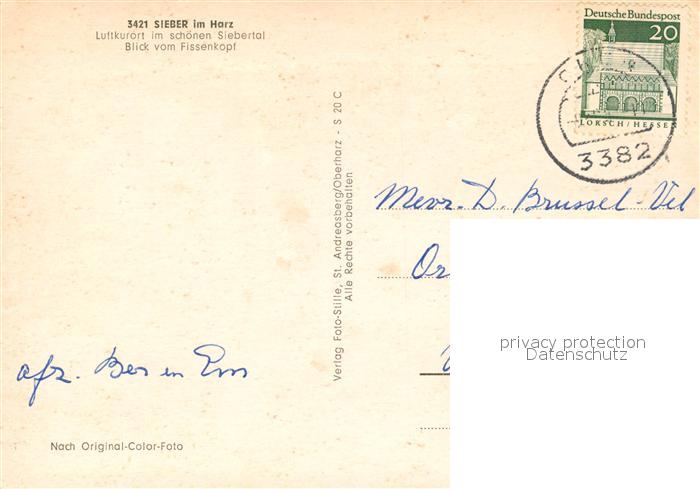 3421 SIEBER im Harz
Luftkurort im schönen Siebertal
Blick vom Fissenkopf
Deutsche Bundespost
20
LORSCH / HESSEN
3382
Verlag Foto-Stille, St. Andreasberg/Oberharz - S 20 C
Alle Rechte vorbehalten
Mevr. D. Brussel-Vel
Or
privacy protection
Datenschutz
afz. Ber en Em
Nach Original-Color-Foto